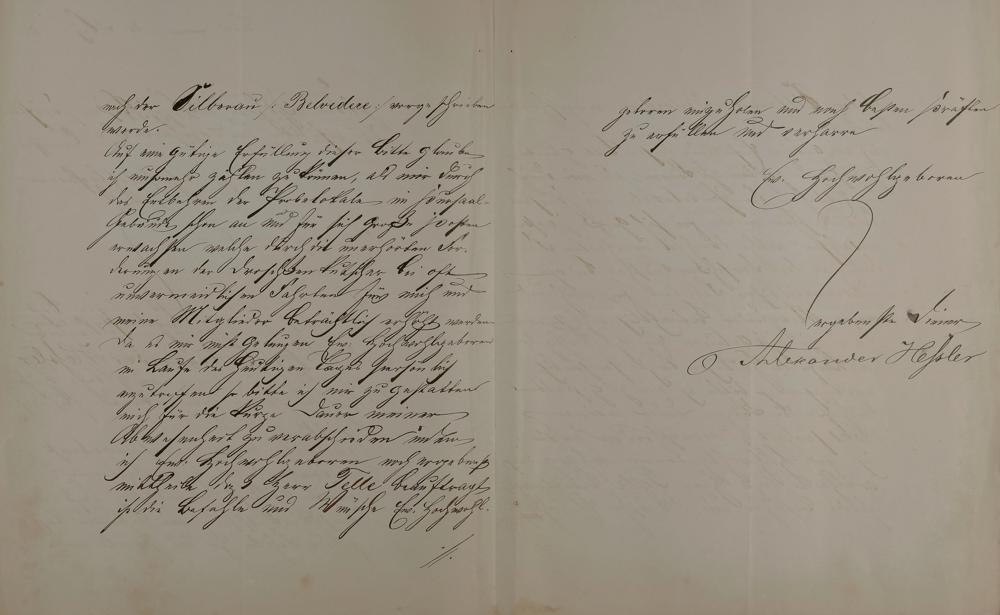 nach der Silberau /: Belvedere :/ vorgeschrieben
werde.
Auf eine gütige Erfüllung dieser Bitte glaube
ich nunmehr zählen zu können, als mir durch
das Entbehren der Probelokale im Kursaal-
Gebäude schon an und für sich große Kosten
erwachsen welche durch die unerhörten For-
derungen der Droschkenkutscher bei oft
unvermeidlichen Fahrten für mich und
meine Mitglieder beträchtlich erhöht werden.
Da es mir nicht gelungen Ew. Hochwohlgeboren
im Laufe des heutigen Tages persönlich
anzutreffen so bitte ich mir zu gestatten
mich für die kurze Dauer meiner
Abwesenheit zu verabschieden indem
ich Ew. Hochwohlgeboren noch ergebenst
mittheile daß Herr Telle beauftragt
ist die Befehle und Wünsche Ew. Hochwohl-
·/.
geboren einzuholen und nach besten Kräften
zu erfüllen und verharre
Ew. Hochwohlgeboren
ergebenster Diener
Alexander Hessler